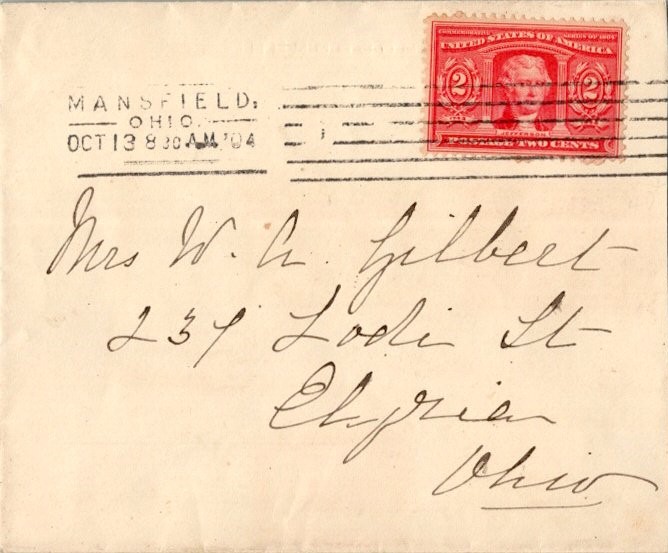 UNITED STATES OF AMERICA
2 2
JEFFERSON
POSTAGE TWO CENTS
MANSFIELD,
OHIO.
OCT 13 8 30 AM '04
Mrs W. A. Gilbert
237 Lodi St
Elyria
Ohio